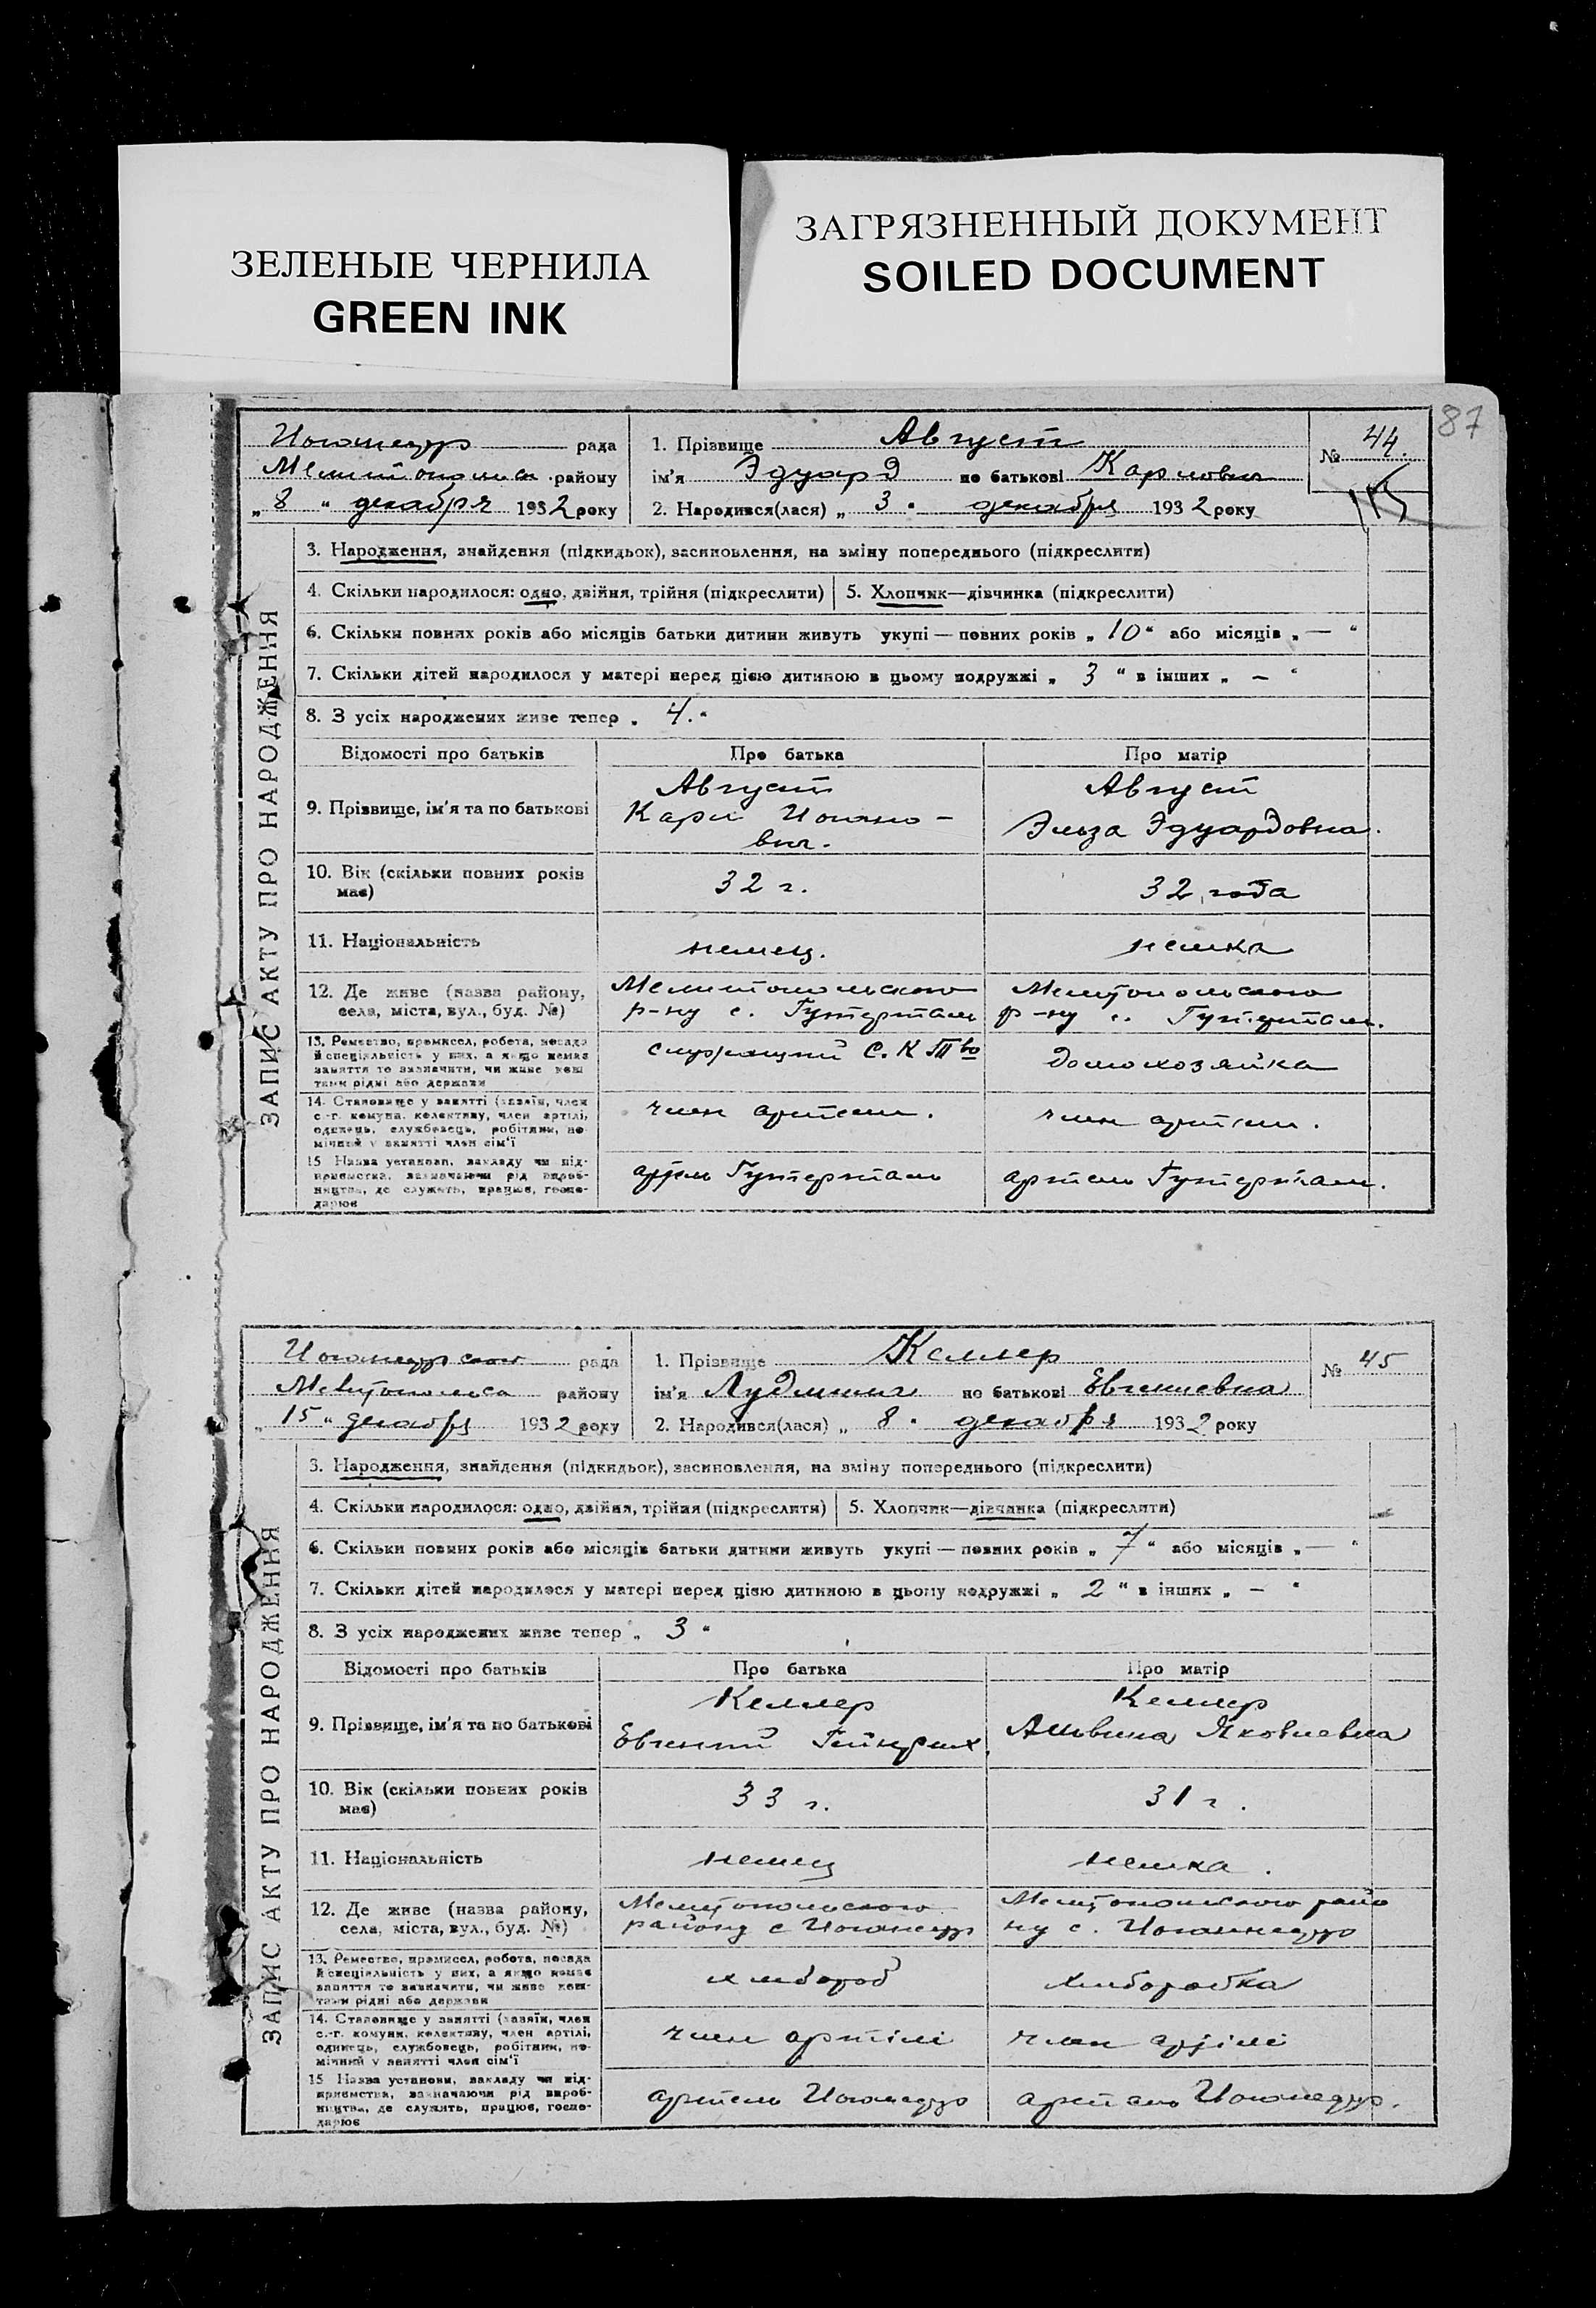 ЗЕЛЕНЫЕ ЧЕРНИЛА
GREEN INK
ЗАГРЯЗНЕННЫЙ ДОКУМЕНТ
SOILED DOCUMENT
87
ЗАПИС АКТУ ПРО НАРОДЖЕННЯ
рада
району
„ 8 “ декабря 1932 року
1. Прізвище Август
ім'я Эдуард по батькові Карлович
2. Народився(лася) „ 3 “ декабря 1932 року
№ 44.
3. Народження, знайдення (підкидьок), засиновлення, на зміну попереднього (підкреслити)
4. Скільки народилося: одно, двійня, трійня (підкреслити)
5. Хлопчик—дівчинка (підкреслити)
6. Скільки повних років або місяців батьки дитини живуть укупі — повних років „ 10 “ або місяців „ — “
7. Скільки дітей народилося у матері перед цією дитиною в цьому подружжі „ 3 “ в інших „ – “
8. З усіх народжених живе тепер „ 4. “
Відомості про батьків
Про батька
Про матір
9. Прізвище, ім'я та по батькові
Август
Карл Иогано-
вич.
Август
Эльза Эдуардовна.
10. Вік (скільки повних років
має)
32 г.
32 года
11. Національність
немец.
немка
12. Де живе (назва району,
села, міста, вул., буд. №)
Мелитопольского
р-ну с. Гутерталь
Мелитопольского
р-ну с. Гутерталь.
13. Ремество, промисел, робота, посада
й спеціяльність у них, а якщо немає
заняття то зазначити, чи живе кош-
тами рідні або держави
служащий С. К. Тво
домохозяйка
14. Становище у занятті (хазяїн, член
с.-г. комуни, колективу, член артілі,
одинець, службовець, робітник, по-
мічний у занятті член сім'ї
член артели.
член артели.
15 Назва установи, закладу чи під-
приємства, зазначаючи рід вироб-
ництва, де служить, працює, госпо-
дарює
артель Гутерталь
артель Гутерталь.
ЗАПИС АКТУ ПРО НАРОДЖЕННЯ
рада
району
„ 15 “ декабря 1932 року
1. Прізвище Келлер
ім'я по батькові Евгениевна
2. Народився(лася) „ 8 “ декабря 1932 року
№ 45
3. Народження, знайдення (підкидьок), засиновлення, на зміну попереднього (підкреслити)
4. Скільки народилося: одно, двійня, трійня (підкреслити)
5. Хлопчик—дівчинка (підкреслити)
6. Скільки повних років або місяців батьки дитини живуть укупі — повних років „ 7 “ або місяців „ — “
7. Скільки дітей народилося у матері перед цією дитиною в цьому подружжі „ 2 “ в інших „ – “
8. З усіх народжених живе тепер „ 3 “
Відомості про батьків
Про батька
Про матір
9. Прізвище, ім'я та по батькові
Келлер
Евгений Гейнрих.
Келлер
Альвина Яковлевна
10. Вік (скільки повних років
має)
33 г.
31 г.
11. Національність
немец
немка.
12. Де живе (назва району,
села, міста, вул., буд. №)
Мелитопольского
району с
Мелитопольского райо
ну с.
13. Ремество, промисел, робота, посада
й спеціяльність у них, а якщо немає
заняття то зазначити, чи живе кош-
тами рідні або держави
хлибороб
хлиборобка
14. Становище у занятті (хазяїн, член
с.-г. комуни, колективу, член артілі,
одинець, службовець, робітник, по-
мічний у занятті член сім'ї
член артілі
член артілі
15 Назва установи, закладу чи під-
приємства, зазначаючи рід вироб-
ництва, де служить, працює, госпо-
дарює
артель
артель